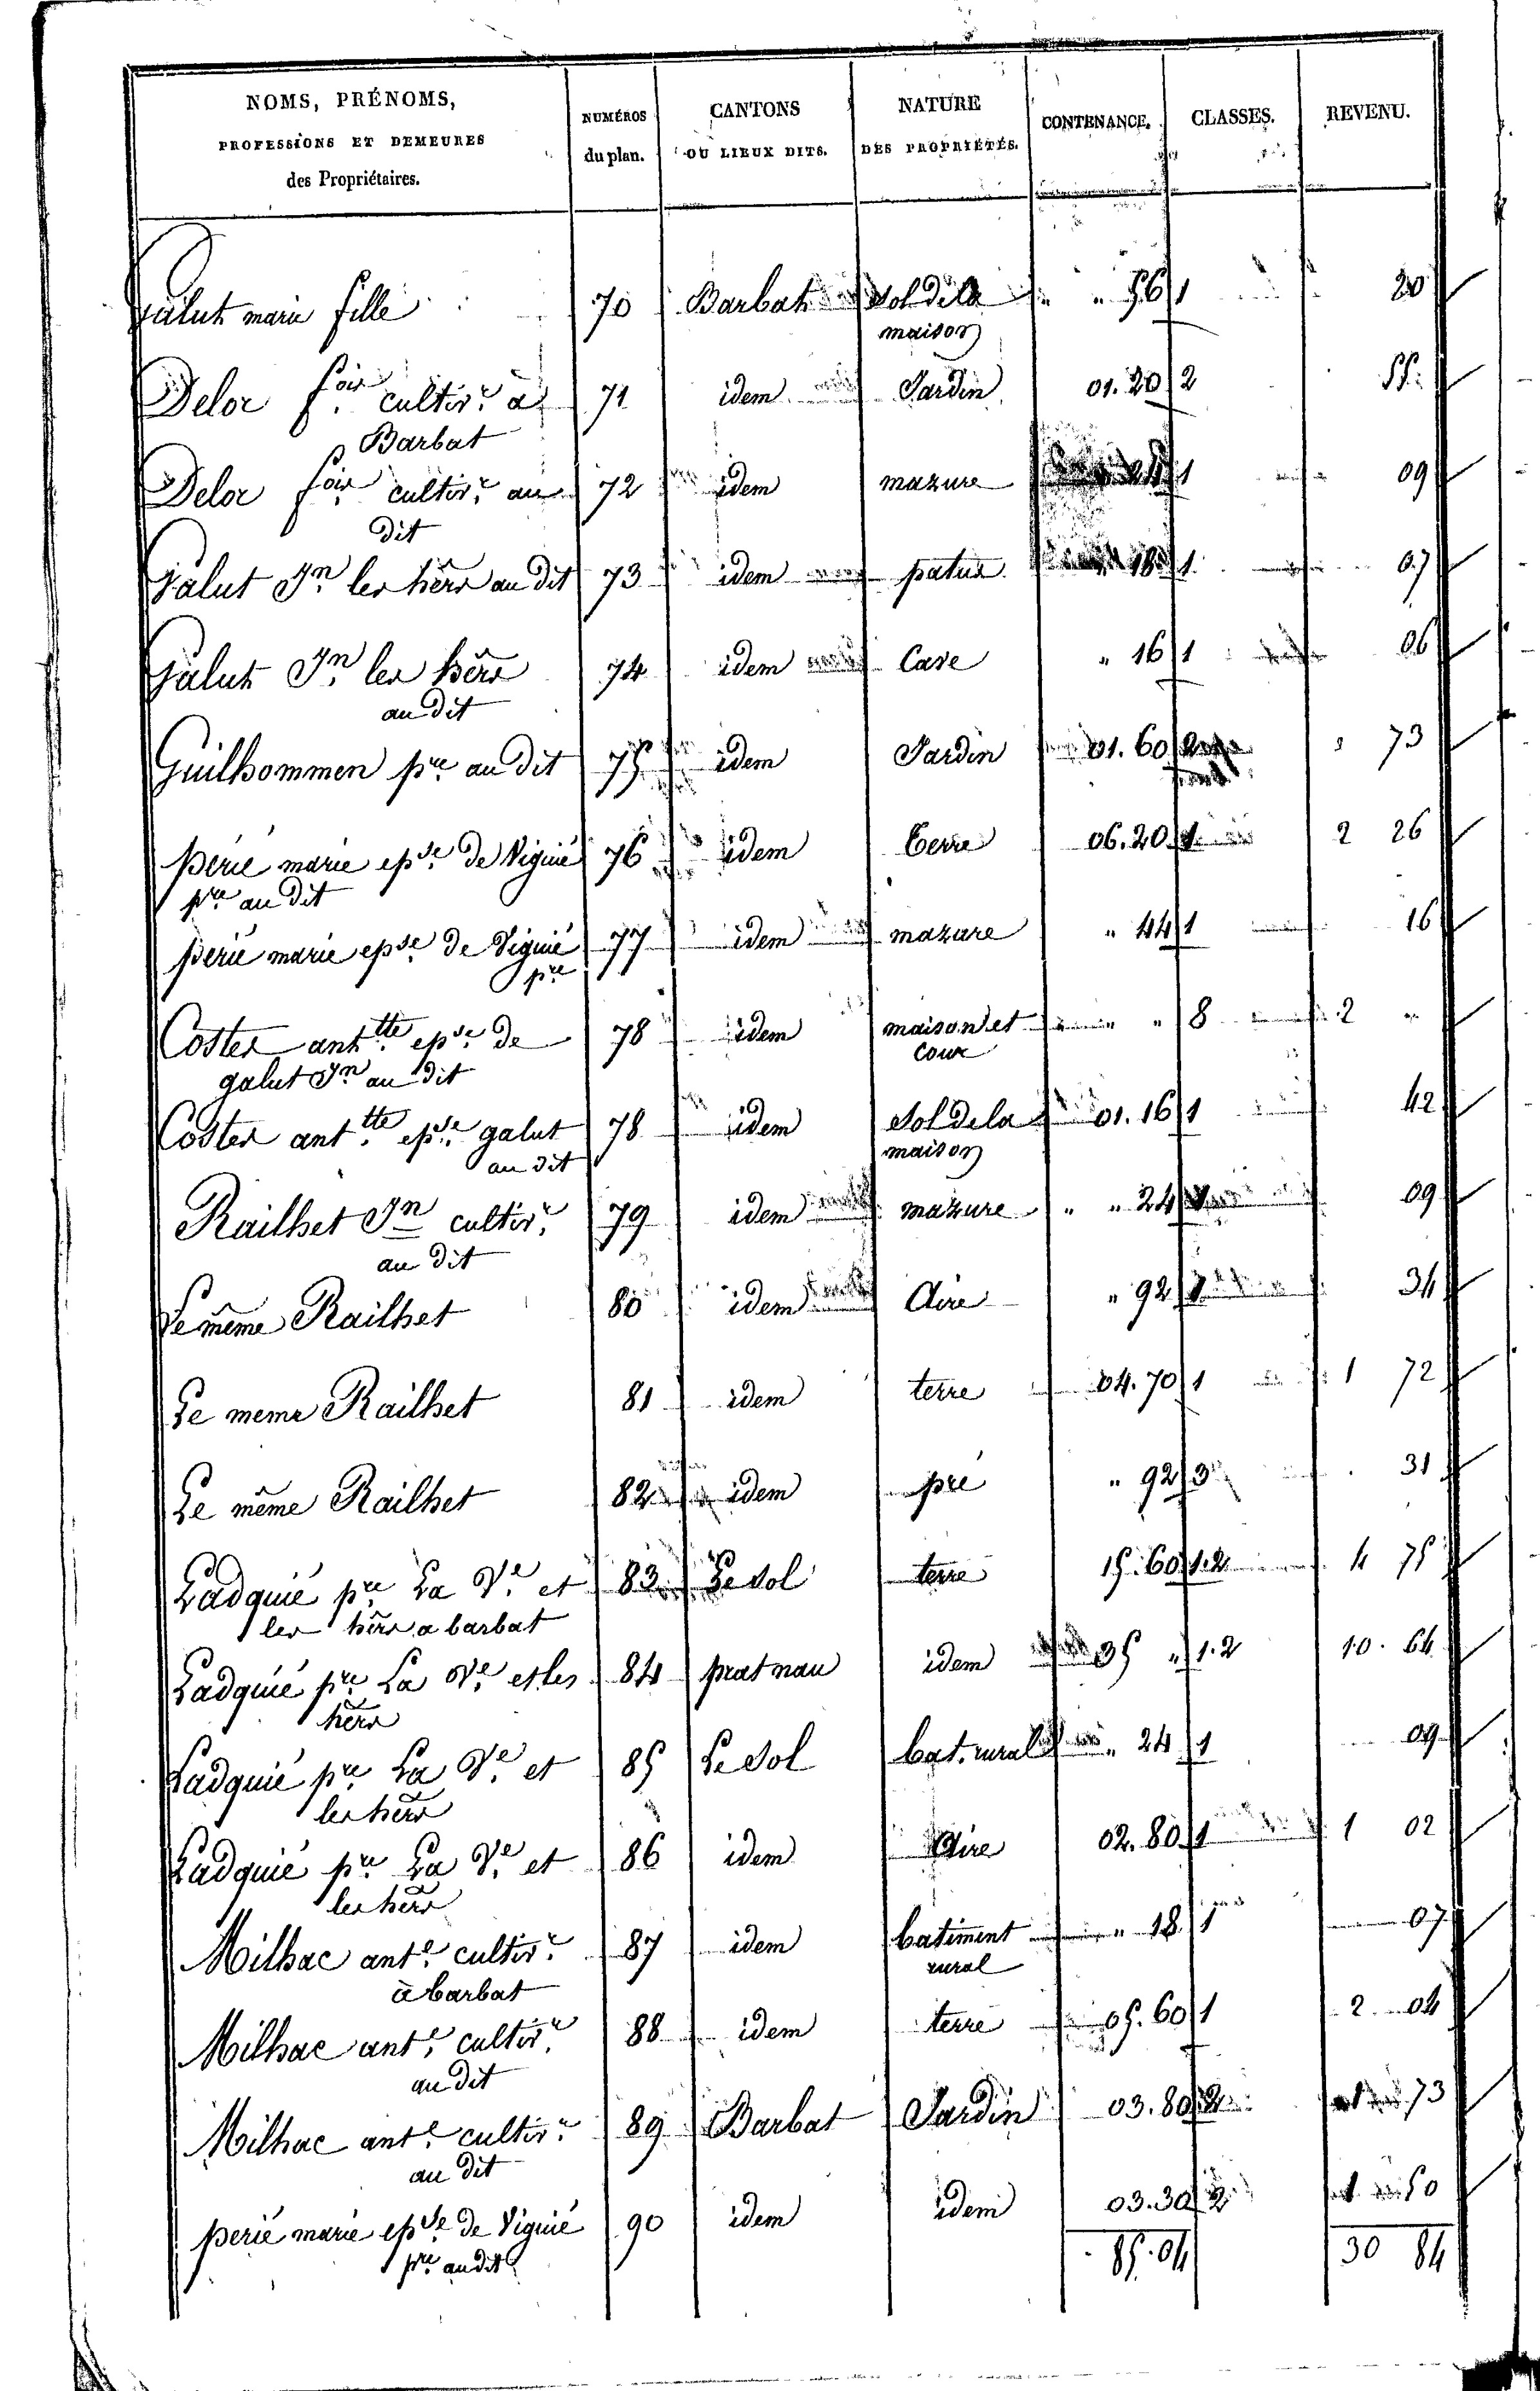 NOMS, PRÉNOMS, PROFESSIONS ET DEMEURES des Propriétaires. | NUMÉROS du plan. | CANTONS OU LIEUX DITS. | NATURE DES PROPRIÉTÉS. | CONTENANCE. | CLASSES. | REVENU.
Galut marie fille 70 Barbat Sol de la " " 56 1 20
maison
Delor f.ois cultivr. à 71 idem Jardin 01.20 2 55
Barbat
Delor f.ois cultivr. au 72 idem mazure 24 1 09
dit
Galut Jn. les hêrs au dit 73 idem patus " 18 1 07
Galut Jn. les hêrs 74 idem Cave " 16 1 06
au dit
Guilhommen pre. au dit 75 idem Jardin 01.60 2 73
périé marie epse. de Viguié 76 idem Terre 06.20 1 2 26
pre. au dit
périé marie epse. de Viguié 77 idem mazure " 44 1 16
pre
Coster antte. epse. de 78 idem maison et " " 8 2 "
galut Jn au dit cour
Coster antte. epse. galut 78 idem Sol de la 01.16 1 42
au dit maison
Railhet Jn cultivr. 79 idem mazure " " 24 1 09
au dit
Le même Railhet 80 idem Aire " 92 1 34
Le meme Railhet 81 idem terre 04.70 1 1 72
Le même Railhet 82 idem pré " 92 3 31
Ladquié pre. La Ve. et 83 Le Sol terre 15.60 1.2 4 75
les hêrs a barbat
Ladquié pre. La Ve. et les 84 prat nau idem 35 " 1.2 10.64
hêrs
Ladquié pre. La Ve. et 85 Le Sol bat. rural " 24 1 09
les hêrs
Ladquié pre. La Ve. et 86 idem Aire 02.80 1 1 02
les hêrs
Milhac ante. cultivr. 87 idem batiment " 18 1 07
à barbat rural
Milhac ante. cultivr. 88 idem terre 05.60 1 2 04
au dit
Milhac ante. cultivr. 89 Barbat Jardin 03.80 2 1 73
au dit
perié marie epse. de Viguié 90 idem idem 03.30 2 1 50
pre. au dit 85.04 30 84